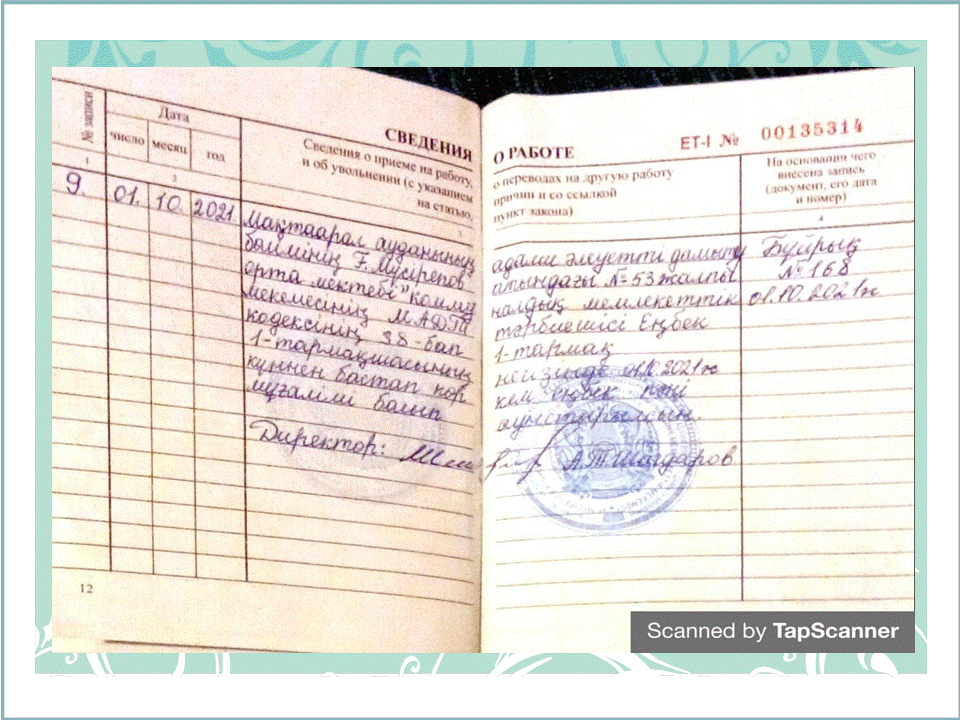 № записи
Дата
число месяц год
СВЕДЕНИЯ
Сведения о приеме на работу,
и об увольнении (с указанием
на статью,
1
2
3
9. 01. 10. 2021. Мақтаарал ауданының
бөлімінің Ғ.Мүсірепов
орта мектебі" коммун
мекемесінің МАДТ
кодексінің 38-бап
1-тармақшасының
күннен бастап кор
мұғалімі болып
Директор:
12
О РАБОТЕ
ЕТ-I № 00135314
о переводах на другую работу
причин и со ссылкой
пункт закона)
На основании чего
внесена запись
(документ, его дата
и номер)
4
адами әлеуетті дамыту Бұйрық
атындағы №53 жалпы №168
налдық мемлекеттік 01.10.2021ж
тәрбиешісі Еңбек
1-тармақ
негізінде 01.10.2021ж
кем еңбек
ауыстырылсын.
А.Т.Шалдаров
Scanned by TapScanner